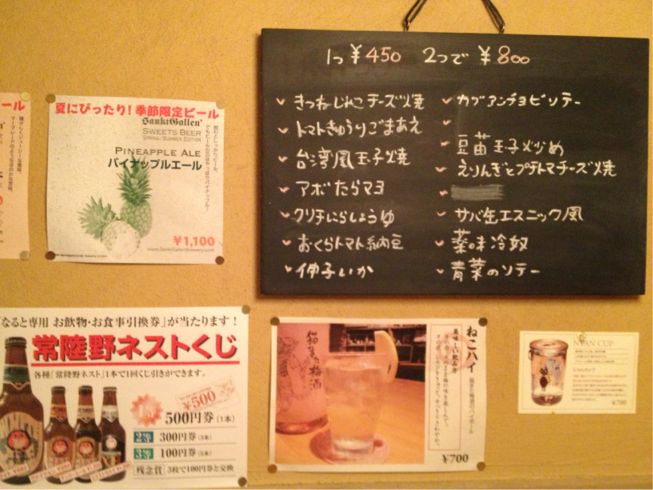 1つ ¥450 2つで ¥800
きつねじゃこチーズ焼
トマトきゅうりごまあえ
台湾風玉子焼
アボたらマヨ
クリチいらしょうゆ
おくらトマト納豆
伸子いか
カブアンチョビソテー
豆苗玉子炒め
えりんぎとプチトマチーズ焼
サバ缶エスニック風
薬味冷奴
青菜のソテー
ール
夏にぴったり!季節限定ビール
SanktGallen
SWEETS BEER
PINEAPPLE ALE
パイナップルエール
¥1,100
「なると専用 お飲物・お食事引換券」が当たります!
常陸野ネストくじ
各種「常陸野ネスト」1本で1回くじ引きができます。
¥500
500円券(1本)
2等 300円券
3等 100円券
残念賞 3枚で100円券と交換
ねこハイ
美味しい飲み方
¥700
NYAN CUP
にゃんカップ
¥700